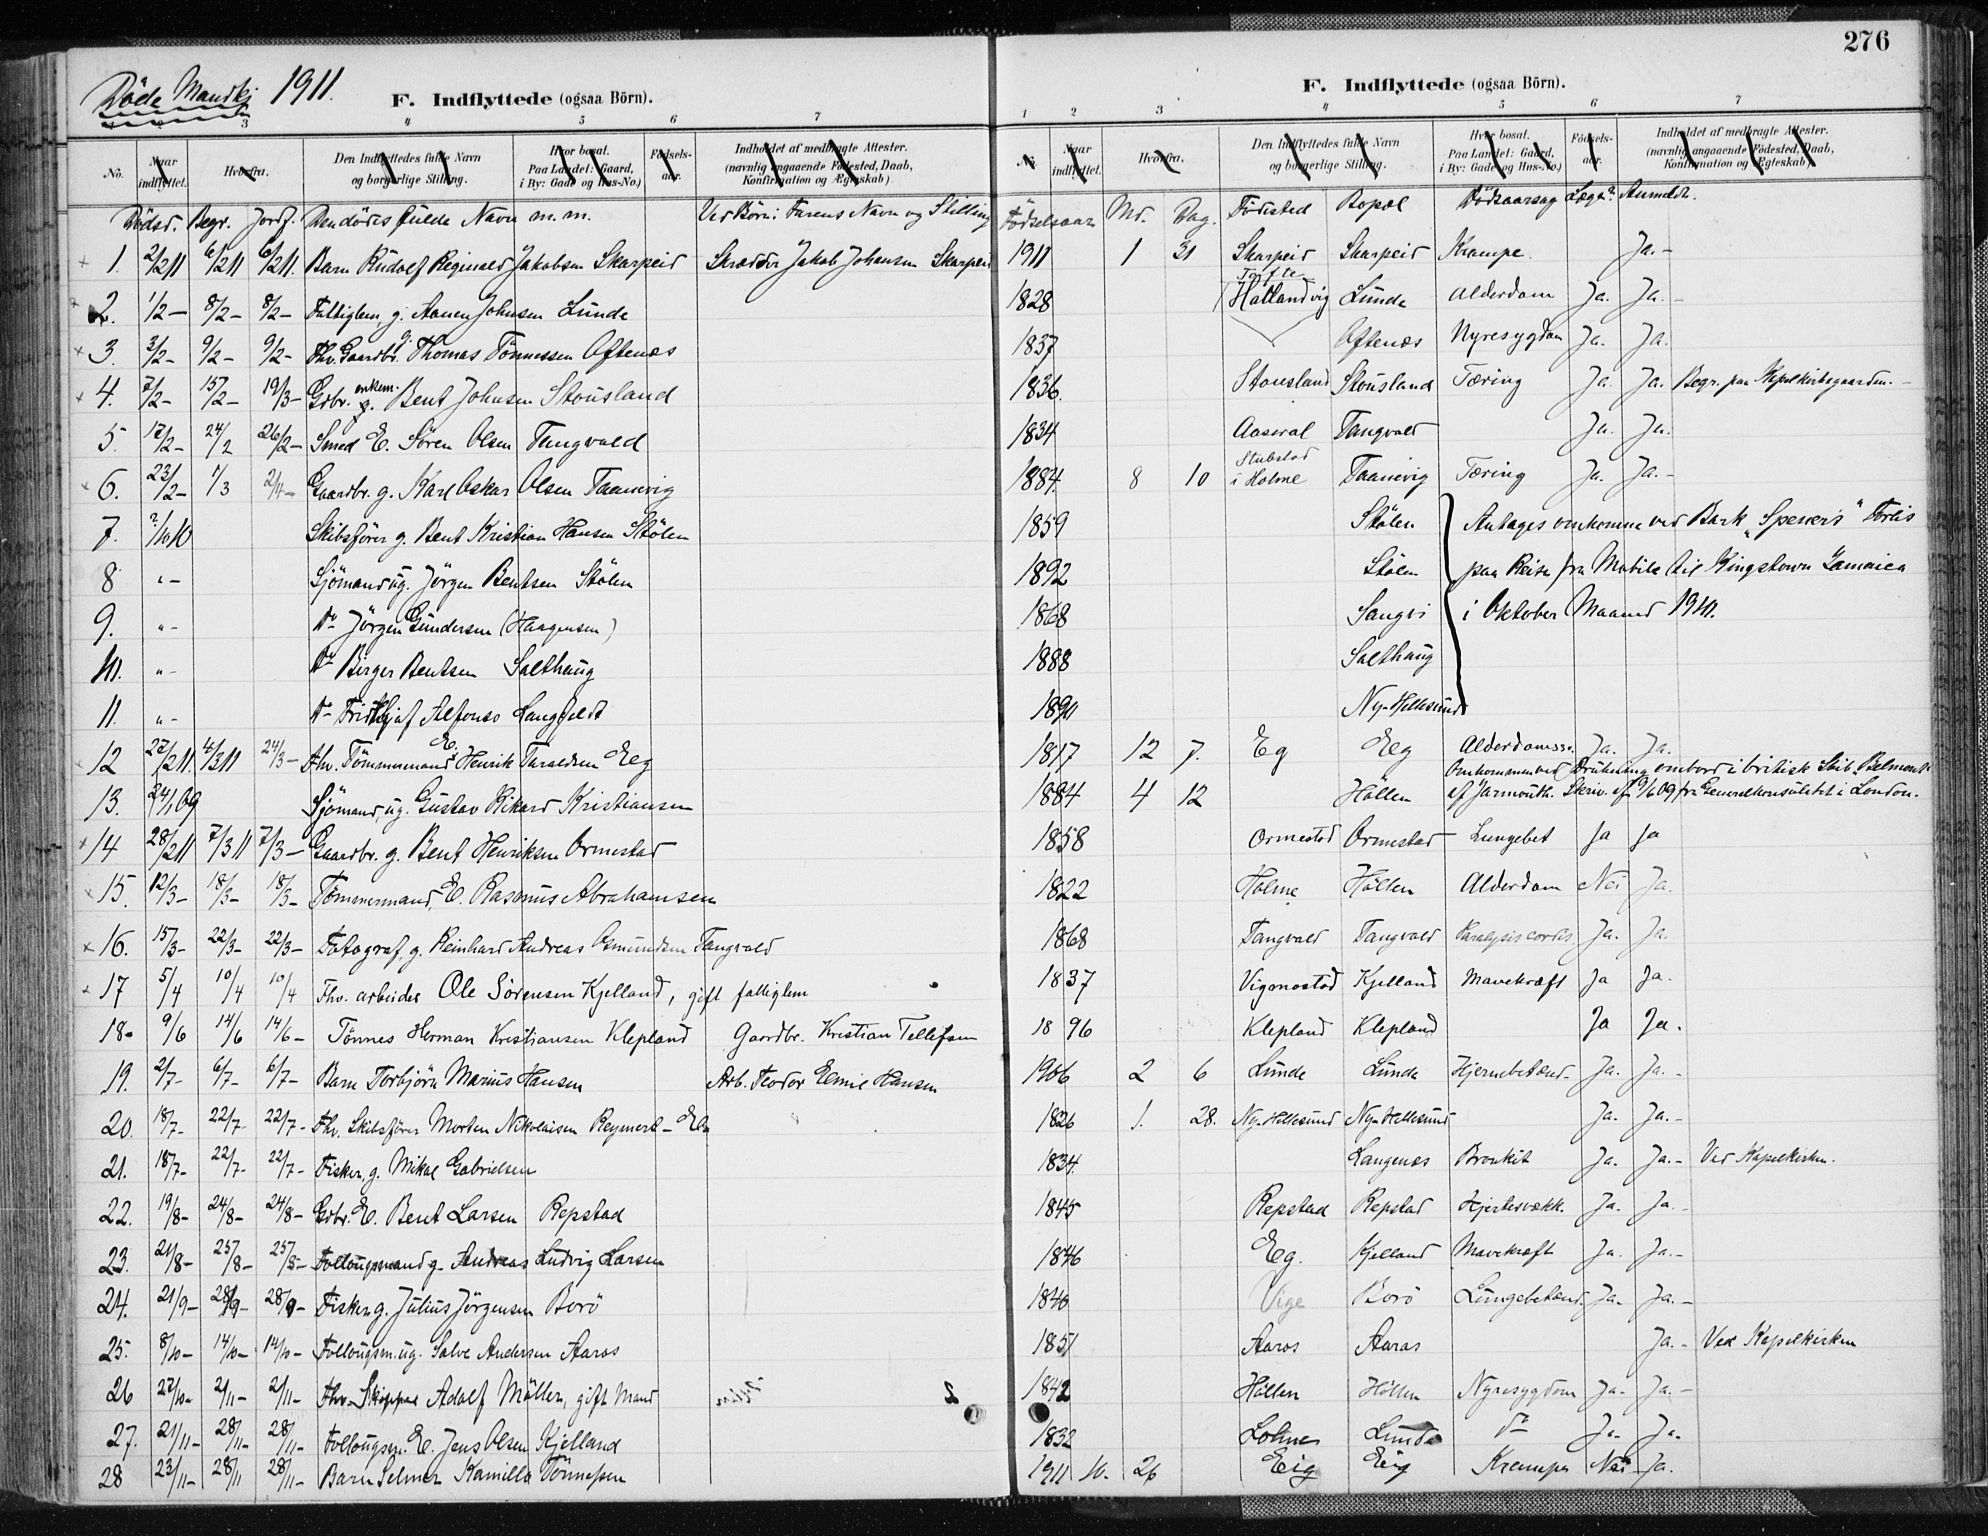 276
Döde Mandkj 1911.
F. Indflyttede (ogsaa Börn).
F. Indflyttede (ogsaa Börn).
3 4 5 6 7
1 2 3 4 5 6 7
No. Naar indflyttet. Hvorfra. Den Indflyttedes fulde Navn og borgerlige Stilling. Hvor bosat. Paa Landet: Gaard, i By: Gade og Hus-No.) Födsels-aar. Indholdet af medbragte Attester. (navnlig angaaende Födested, Daab, Konfirmation og Ægteskab).
No. Naar indflyttet. Hvorfra. Den Indflyttedes fulde Navn og borgerlige Stilling. Hvor bosat. Paa Landet: Gaard, i By: Gade og Hus-No.) Födsels-aar. Indholdet af medbragte Attester. (navnlig angaaende Födested, Daab, Konfirmation og Ægteskab).
Dödsd. Begr. Jordf. Den dödes fulde Navn m.m. Ved Börn: Farens Navn og Stilling Födselsaar Md. Dag. Födested Bopæl Dödsaarsag Læge? Anmeldt.
1. 2/2 11 6/2 11 6/2 11. Barn Rudolf Reginald Jakobsen Skarpeid Skrædder Jakob Johansen Skarpeid 1911 1 31 Skarpeid Skarpeid Krampe. Ja.-
2. 1/2- 8/2- 8/2- Fattiglem, g. Aanen Johnsen Lunde 1828 Tofte Hallandvig Lunde Alderdom Ja. Ja.-
3. 3/2- 9/2- 9/2- Fhv. Gaardbr. g. Thomas Tönnessen Oftenæs 1837 Oftenæs Nyresygdom Ja. Ja.
4. 7/2- 15/2- 19/3- Gdbr. enkem. Bent Johnsen Stousland 1836 Stousland Stousland Tæring Ja. Ja. Begr. paa Kapelkirkegaarden.-
5 17/2- 24/2 26/2- Smed E. Sören Olsen Tangvald 1834 Aaseral Tangvald Ja. Ja.
6. 23/2- 1/3 2/4- Gaardbr. g. Karl Oskar Olsen Taanevig 1884. 8 10 Stubstad i Holme Taanevig Tæring Ja. Ja.-
7. ?/10 10 Skibsförer g. Bent Kristian Hansen Stölen 1859 Stölen Antages omkomne ved Bark "Spener's" Forlis
8 "- Sjömand ug. Jörgen Bentsen Stölen 1892 Stölen paa Reise fra Mobile til Kingstown Jamaica
9. "- Do Jörgen Gundersen (Haagensen) 1868 Sangvi i Oktober Maaned 1910.
10. "- Do Birger Bentsen Salthaug 1888 Salthaug
11. "- Do Fridtjof Alfonso Langfeldt 1890 Ny-Hellesund
12 27/2 11. 4/3 11 24/3- Fhv. Tömmermand E. Henrik Taraldsen Eeg 1817 12 7. Eg Eeg Alderdomssv. Ja. Ja.
13. 24/1 09 Sjömand, ug. Gustav Rikard Kristiansen 1884 4 12 Höllen Omkommen ved Drukning ombord i britisk Skib "Belmont"
af Yarmouth. Skriv. af 9/6 09 fra Generalkonsulatet i London.
14 28/2 11 7/3 11 7/3- Gaardbr. g. Bent Henriksen Ormestad 1858 Ormestad Ormestad Lungebet Ja Ja
15. 12/3- 18/3- 18/3- Tömmermand, E. Rasmus Abrahamsen 1822 Holme Höllen Alderdom Nei Ja.
16. 15/3- 22/3- 22/3- Fotograf, g. Reinhard Andreas Osmundsen Tangvald 1868 Tangvald Tangvald Paralysis cordis. Ja. Ja.
17 5/4 10/4 10/4 Fhv. arbeider Ole Sörensen Kjelland, gift fattiglem 1837 Vigmostad Kjelland Mavekræft Ja Ja.
18- 9/6 14/6 14/6- Tönnes Herman Kristiansen Klepland Gaardbr. Kristian Tellefsen 1896 Klepland Klepland Ja Ja.
19. 2/7- 6/7- 6/7- Barn Torbjörn Marius Hansen Arb. Teodor Emil Hansen 1906 2 6 Lunde Lunde Hjernebetænd- Ja. Ja.-
20. 18/7- 22/7- 22/7- Fhv. Skibsförer Morten Nikolaisen Reymert- 1826 1. 28. Ny-Hellesund Ny-Hellesund Ja. Ja.-
21. 18/7- 22/7- 22/7- Fisker, g. Mikal Gabrielsen 1834. Langenæs Bronkit Ja. Ja.- Ved Kapelkirken.
22. 19/8- 24/8- 24/8- Gdbr. E. Bent Larsen Repstad 1845 Repstad Repstad Hjertesvækk. Ja. Ja.-
23. 21/8- 25/8- 25/8- Follougsmand g. Andreas Ludvig Larsen 1846 Eg. Kjelland Mavekræft Ja. Ja.-
24. 21/9- 28/9- 28/9- Fisker g. Julius Jörgensen Borö 1846 Vige Borö Lungebetænd. Ja. Ja.-
25. 8/10- 14/10- 14/10- Follougsm. ug. Salve Andersen Aaros 1851 Aaros Aaros Ja.- Ved Kapelkirken
26 27/10- 2/11- 2/11- Fhv. Skipper Adolf Möller, gift Mand 1842 Höllen Höllen Nyresygdom Ja- Ja.-
27. 21/11- 28/11- 28/11- Follougsm. E. Jens Olsen Kjelland 1832 Lohne Lunde Do Ja- Ja.
28 23/11- 28/11 28/11- Barn Selmer Kamillo Tönnesen 1911 10. 26 Eig Eig Krampe Nei Ja.